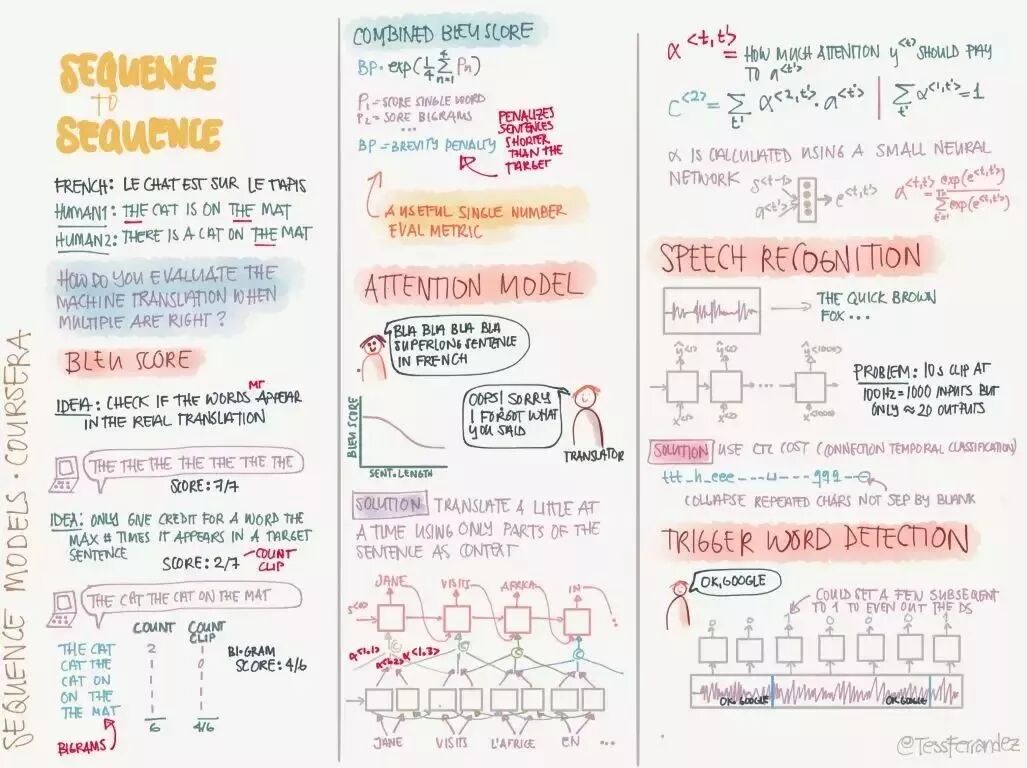 SEQUENCE MODELS · COURSERA
SEQUENCE
TO
SEQUENCE
FRENCH: LE CHAT EST SUR LE TAPIS
HUMAN1: THE CAT IS ON THE MAT
HUMAN2: THERE IS A CAT ON THE MAT
HOW DO YOU EVALUATE THE
MACHINE TRANSLATION WHEN
MULTIPLE ARE RIGHT?
BLEU SCORE
IDEA: CHECK IF THE WORDS MT APPEAR
IN THE REAL TRANSLATION
THE THE THE THE THE THE THE
SCORE: 7/7
IDEA: ONLY GIVE CREDIT FOR A WORD THE
MAX # TIMES IT APPEARS IN A TARGET
SENTENCE
SCORE: 2/7
COUNT
CLIP
THE CAT THE CAT ON THE MAT
COUNT COUNT
CLIP
THE CAT 2 1
CAT THE 1 0
CAT ON 1 1
ON THE 1 1
THE MAT 1 1
6 4/6
BI-GRAM
SCORE: 4/6
BIGRAMS
COMBINED BLEU SCORE
BP · exp(1/4 4∑n=1 Pn)
P1 = SCORE SINGLE WORD
P2 = SORE BIGRAMS
...
BP = BREVITY PENALTY
PENALIZES
SENTENCES
SHORTER
THAN THE
TARGET
A USEFUL SINGLE NUMBER
EVAL METRIC
ATTENTION MODEL
BLA BLA BLA BLA
SUPERLONG SENTENCE
IN FRENCH
OOPS! SORRY
I FORGOT WHAT
YOU SAID
TRANSLATOR
BLEU SCORE
SENT. LENGTH
SOLUTION TRANSLATE A LITTLE AT
A TIME USING ONLY PARTS OF THE
SENTENCE AS CONTEXT
JANE VISITS AFRICA IN
S<0> ...
C C C C
α<1,1> α<1,2> α<1,3>
JANE VISITS L'AFRICE EN ...
α<t,t'> = HOW MUCH ATTENTION y<t> SHOULD PAY
TO a<t'>
C<2> = ∑t' α<2,t'> · a<t'> | ∑t' α<1,t'> = 1
α IS CALCULATED USING A SMALL NEURAL
NETWORK
S<t-1>
a<t'>
e<t,t'>
α<t,t'> = exp(e<t,t'>) / ∑t'=1 exp(e<t,t'>)
SPEECH RECOGNITION
THE QUICK BROWN
FOX ...
ŷ<1> ŷ<2> ŷ<1000>
...
x<1> x<2> x<1000>
PROBLEM: 10s CLIP AT
100Hz = 1000 INPUTS BUT
ONLY ≈ 20 OUTPUTS
SOLUTION USE CTC COST (CONNECTION TEMPORAL CLASSIFICATION)
ttt_h_eee---⊔---qqq--⊖
COLLAPSE REPEATED CHARS NOT SEP BY BLANK
TRIGGER WORD DETECTION
OK, GOOGLE
COULD SET A FEW SUBSEQENT
TO 1 TO EVEN OUT THE DS
0 0 1 0 0 0 1
OK, GOOGLE OK GOOGLE
@TessFerrandez